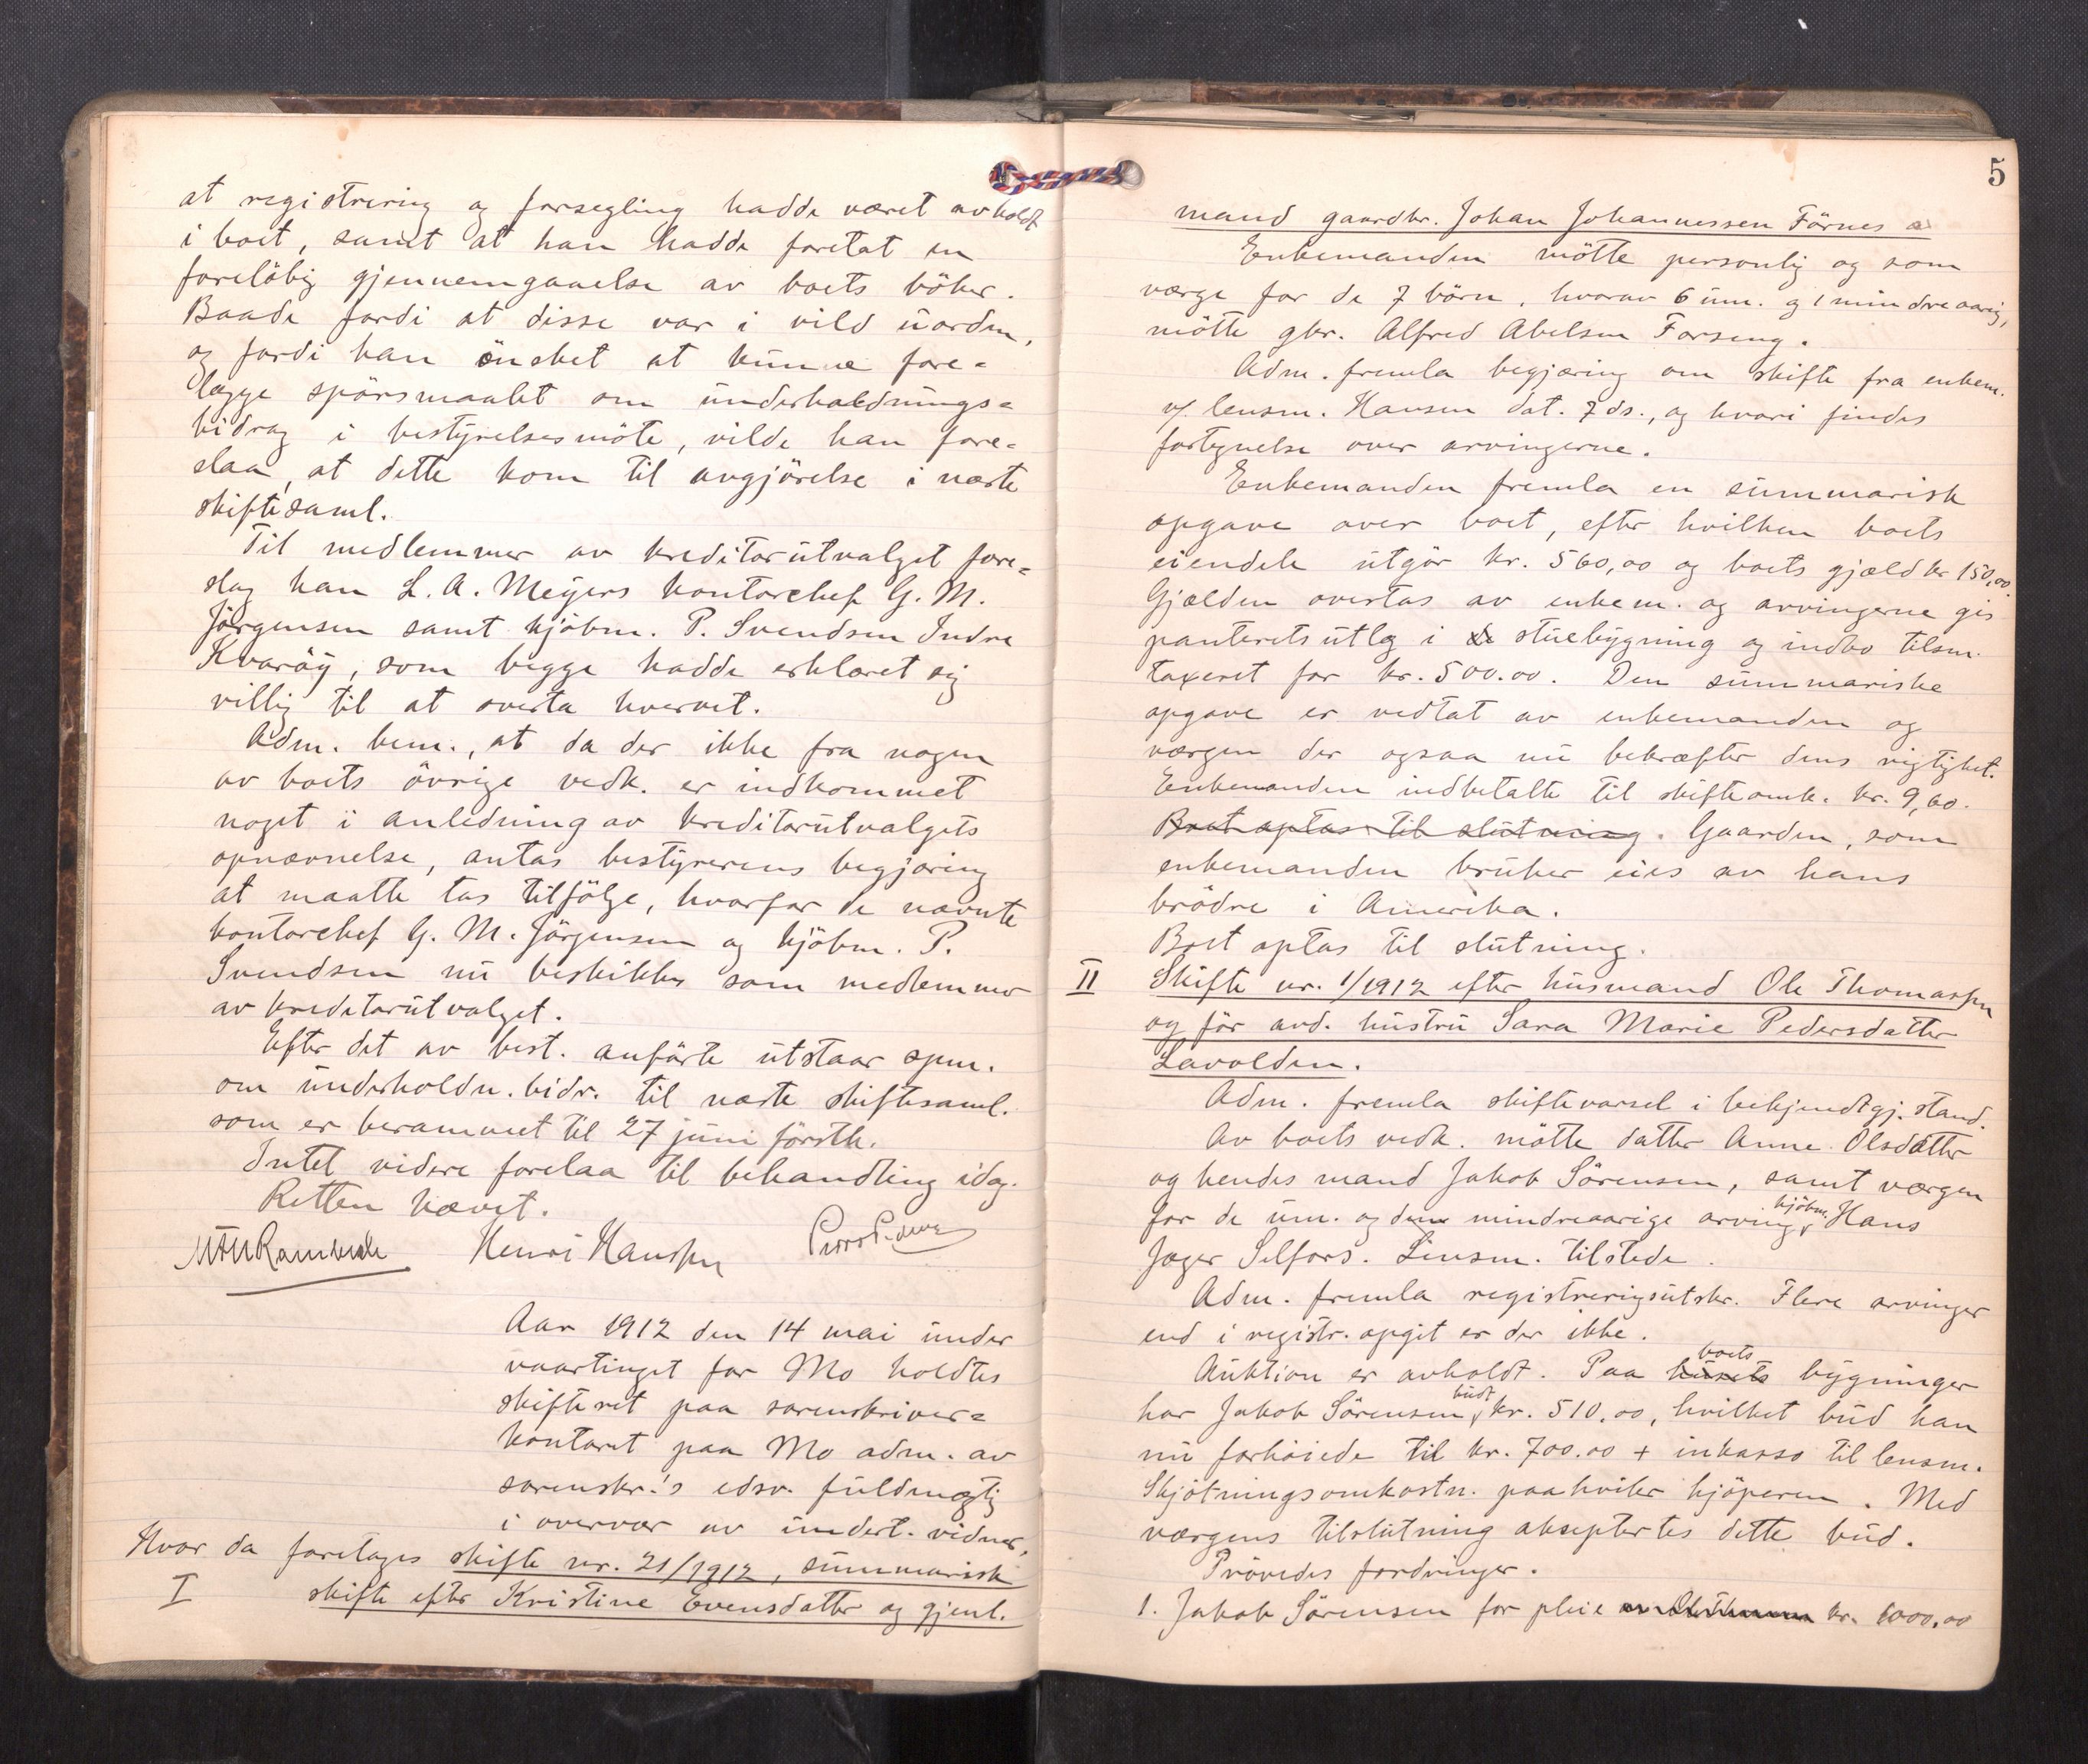 at registrering og forsegling hadde været avholdt
i boet, samt at han hadde foretat en
foreløbig gjennemgaaelse av boets böker.
Baade fordi at disse var i vild uorden,
og fordi han önsket at kunne fore-
lægge spörsmaalet om underholdnings-
bidrag i bestyrelsesmöte, vilde han fore-
slaa, at dette kom til avgjörelse i næste
skiftesaml.
Til medlemmer av kreditorutvalget fore-
slog han L. A. Meyers kontorchef G. M.
Jörgensen samt kjöbm. P. Svendsen Indre
Kvaröy, som begge hadde erklæret sig
villig til at overta hvervet.
Adm. bem., at da der ikke fra nogen
av boets övrige vedk. er indkommet
noget i anledning av kreditorutvalgets
opnævnelse, antas bestyrerens begjæring
at maatte tas tilfölge, hvorfor de nævnte
kontorchef G. M. Jörgensen og kjöbm. P.
Svendsen nu beskikkes som medlemmer
av kreditorutvalget.
Efter det av best. anförte utstaar spm.
om underholdn. bidr. til næste skiftesaml.
som er berammet til 27 juni förstk.
Intet videre forelaa til behandling idag.
Retten hævet.
Henri Hanssen
Aar 1912 den 14 mai under
vaartinget for Mo holdtes
skifteret paa sorenskriver-
kontoret paa Mo adm. av
sorenskr.'s edsv. fuldmægtig
i overvær av undert. vidner,
Hvor da foretages skifte nr. 21/1912, summarisk
I skifte efter Kristine Evensdatter og gjenl.
5
mand gaardbr. Johan Johannessen Förnes
Enkemanden mötte personlig og som
værge for de 7 börn, hvorav 6 um. og 1 mindreaarig,
mötte gbr. Alfred Abelsen Forseng.
Adm. fremla begjæring om skifte fra enkem.
v/ lensm. Hansen dat. 7 ds., og hvori findes
fortegnelse over arvingerne.
Enkemanden fremla en summarisk
opgave over boet, efter hvilken boets
eiendele utgör kr. 560,00 og boets gjæld kr 150,00.
Gjælden overtas av enkem. og arvingerne gis
panteretsutlæg i stuebygning og indbo tilsm.
taxeret for kr. 500.00. Den summariske
opgave er vedtat av enkemanden og
værgen der ogsaa nu bekræfter dens rigtighet.
Enkemanden indbetalte til skifteomk. kr. 9,60.
Boet optas til slutning. Gaarden, som
enkemanden bruker eies av hans
brödre i Amerika.
Boet optas til slutning.
II Skifte nr. 1/1912 efter husmand Ole Thomassen
og för avd. hustru Sara Marie Pedersdatter
Lavolden.
Adm. fremla skiftevarsel i bekjendtgj. stand.
Av boets vedk. mötte datter Anne Olsdatter
og hendes mand Jakob Sörensen, samt værgen
for de um. og den mindreaarige arving, kjöbm. Hans
Jæger Selfors. Lensm. tilstede.
Adm. fremla registreringsutskr. Flere arvinger
end i registr. opgit er der ikke.
Auktion er avholdt. Paa husets boets bygninger
har Jakob Sörensen budt kr. 510,00, hvilket bud han
nu forhöiede til kr. 700.00 + inkasso til lensm.
Skjötningsomkostn. paahviler kjöperen. Med
værgens tilslutning akseptertes dette bud.
Prövedes fordringer.
1. Jakob Sörensen for pleie kr. 1000,00